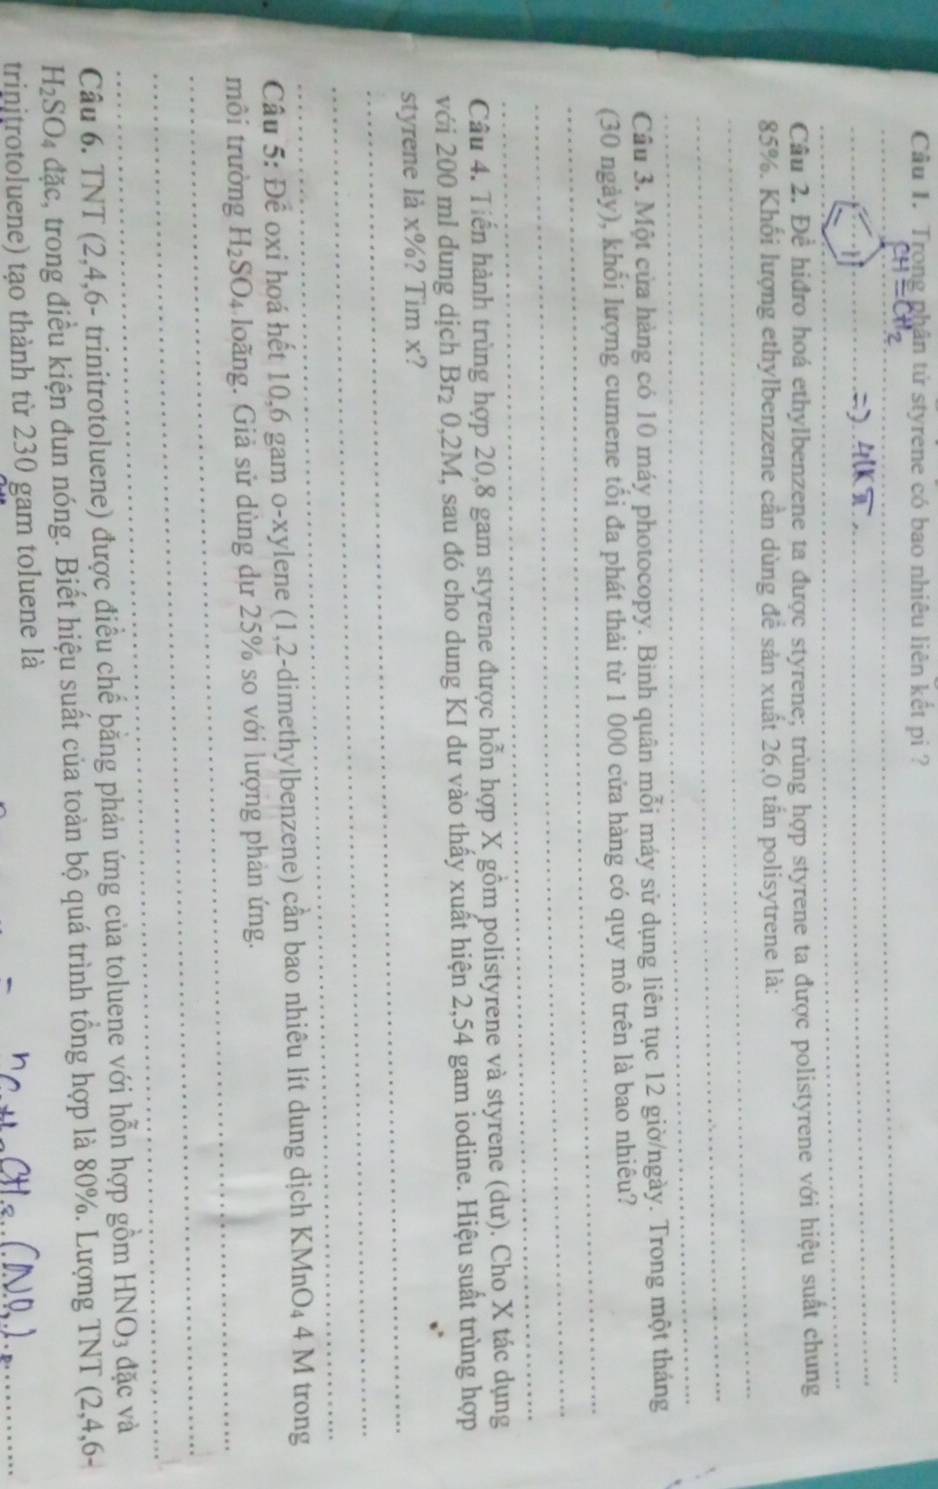 Câu 1. Trong phân tử styrene có bao nhiêu liên kết pi ?
CH=CH2
=) 4lkπ
Câu 2. Để hiđro hoá ethylbenzene ta được styrene; trùng hợp styrene ta được polistyrene với hiệu suất chung
85%. Khối lượng ethylbenzene cần dùng để sản xuất 26,0 tấn polisytrene là:
Câu 3. Một cửa hàng có 10 máy photocopy. Bình quân mỗi máy sử dụng liên tục 12 giờ/ngày. Trong một tháng
(30 ngày), khối lượng cumene tối đa phát thải từ 1 000 cửa hàng có quy mô trên là bao nhiêu?
Câu 4. Tiến hành trùng hợp 20,8 gam styrene được hỗn hợp X gồm polistyrene và styrene (dư). Cho X tác dụng
với 200 ml dung dịch Br₂ 0,2M, sau đó cho dung KI dư vào thấy xuất hiện 2,54 gam iodine. Hiệu suất trùng hợp
styrene là x%? Tìm x?
Câu 5: Để oxi hoá hết 10,6 gam o-xylene (1,2-dimethylbenzene) cần bao nhiêu lít dung dịch KMnO₄ 4 M trong
môi trường H₂SO₄ loãng. Giả sử dùng dư 25% so với lượng phản ứng.
Câu 6. TNT (2,4,6- trinitrotoluene) được điều chế bằng phản ứng của toluene với hỗn hợp gồm HNO₃ đặc và
H₂SO₄ đặc, trong điều kiện đun nóng. Biết hiệu suất của toàn bộ quá trình tổng hợp là 80%. Lượng TNT (2,4,6-
trinitrotoluene) tạo thành từ 230 gam toluene là